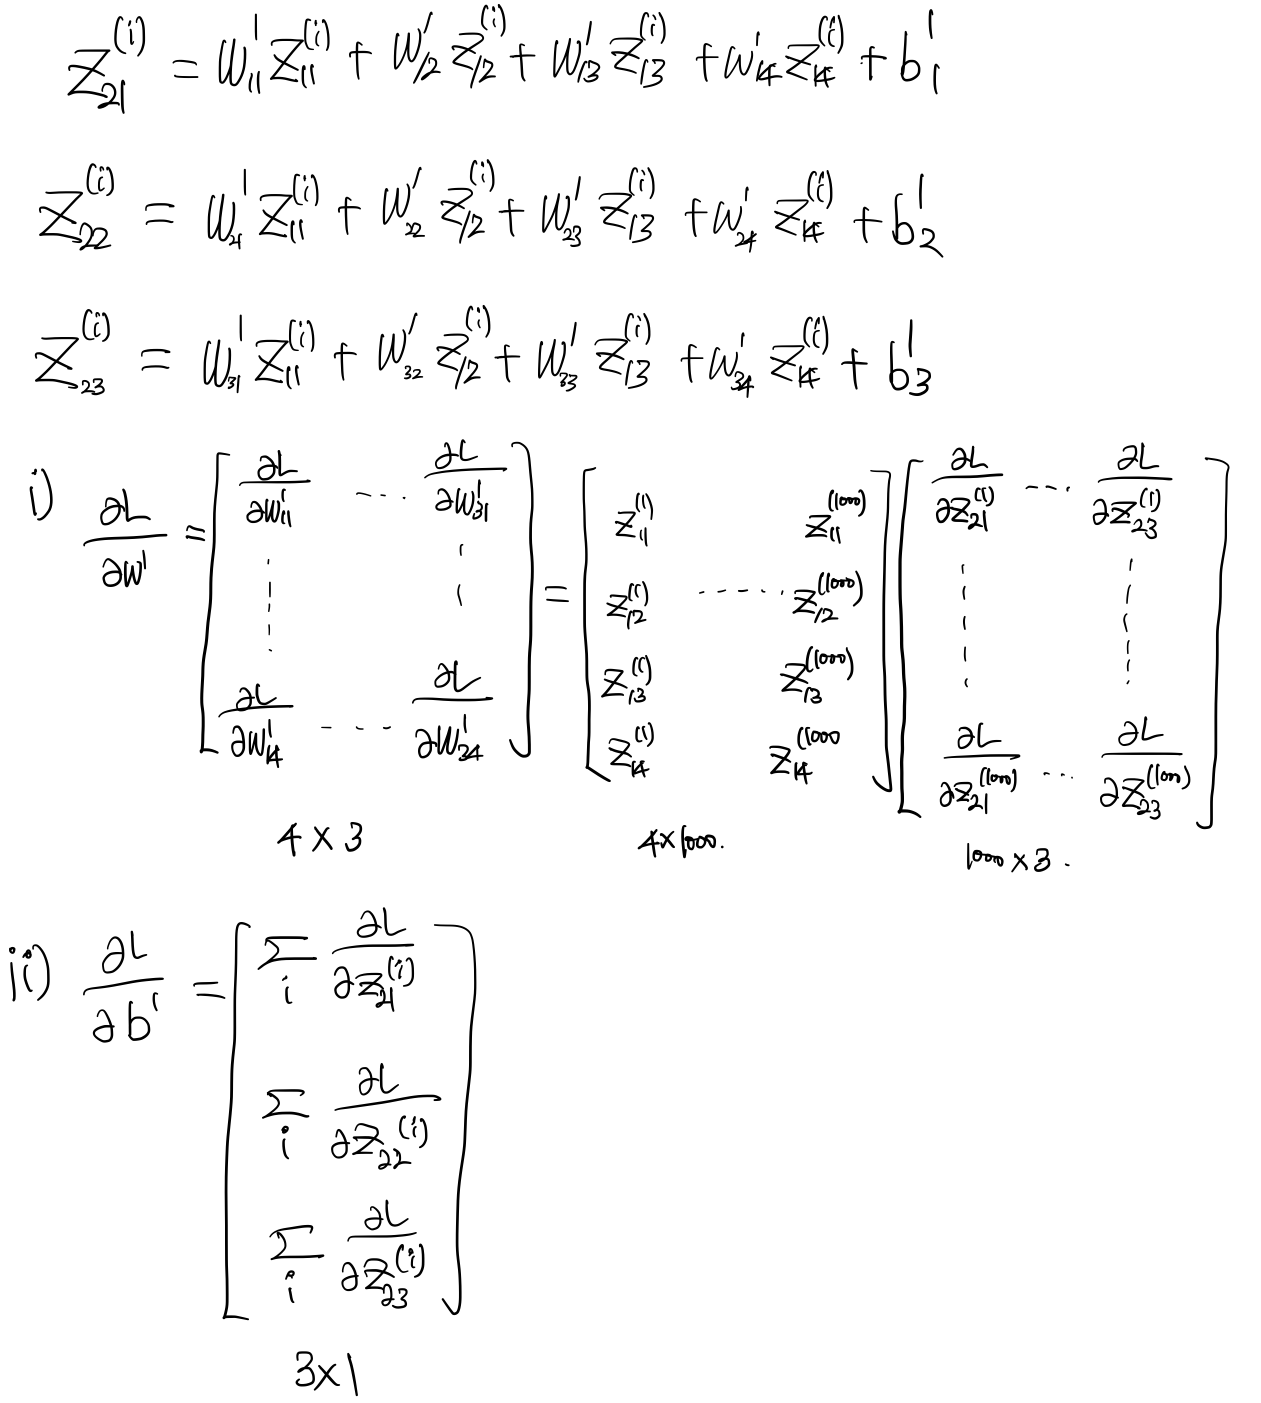 Z₂₁⁽ⁱ⁾ = W₁₁¹ Z₁₁⁽ⁱ⁾ + W₁₂¹ Z₁₂⁽ⁱ⁾ + W₁₃¹ Z₁₃⁽ⁱ⁾ + W₁₄¹ Z₁₄⁽ⁱ⁾ + b₁¹
Z₂₂⁽ⁱ⁾ = W₂₁¹ Z₁₁⁽ⁱ⁾ + W₂₂¹ Z₁₂⁽ⁱ⁾ + W₂₃¹ Z₁₃⁽ⁱ⁾ + W₂₄¹ Z₁₄⁽ⁱ⁾ + b₂¹
Z₂₃⁽ⁱ⁾ = W₃₁¹ Z₁₁⁽ⁱ⁾ + W₃₂¹ Z₁₂⁽ⁱ⁾ + W₃₃¹ Z₁₃⁽ⁱ⁾ + W₃₄¹ Z₁₄⁽ⁱ⁾ + b₃¹
i) ∂L/∂W¹ = [ ∂L/∂W₁₁¹ ... ∂L/∂W₃₁¹ ; ∂L/∂W₁₄¹ ... ∂L/∂W₃₄¹ ] = [ Z₁₁⁽¹⁾ Z₁₁⁽¹⁰⁰⁰⁾ ; Z₁₂⁽¹⁾ ..... Z₁₂⁽¹⁰⁰⁰⁾ ; Z₁₃⁽¹⁾ Z₁₃⁽¹⁰⁰⁰⁾ ; Z₁₄⁽¹⁾ Z₁₄⁽¹⁰⁰⁰ ] [ ∂L/∂Z₂₁⁽¹⁾ ... ∂L/∂Z₂₃⁽¹⁾ ; ∂L/∂Z₂₁⁽¹⁰⁰⁰⁾ ... ∂L/∂Z₂₃⁽¹⁰⁰⁰⁾ ]
4 × 3 4×1000. 1000 × 3.
ii) ∂L/∂b¹ = [ Σᵢ ∂L/∂Z₂₁⁽ⁱ⁾
Σᵢ ∂L/∂Z₂₂⁽ⁱ⁾
Σᵢ ∂L/∂Z₂₃⁽ⁱ⁾ ]
3×1